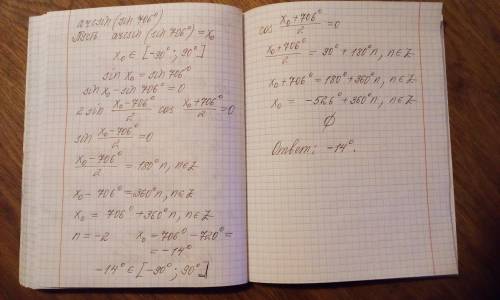 arcsin(sin 706°)
Пусть arcsin(sin 706°) = x₀
x₀ ∈ [-90°; 90°]
sin x₀ = sin 706°
sin x₀ - sin 706° = 0
2 sin (x₀-706°)/2 cos (x₀+706°)/2 = 0
sin (x₀-706°)/2 = 0
(x₀-706°)/2 = 180°n, n∈Z
x₀ - 706° = 360°n, n∈Z
x₀ = 706° + 360°n, n∈Z
n = -2 x₀ = 706° - 720° =
= -14°
-14° ∈ [-90°; 90°]
cos (x₀+706°)/2 = 0
(x₀+706°)/2 = 90° + 180°n, n∈Z
x₀ + 706° = 180° + 360°n, n∈Z
x₀ = -526° + 360°n, n∈Z
∅
Ответ: -14°.